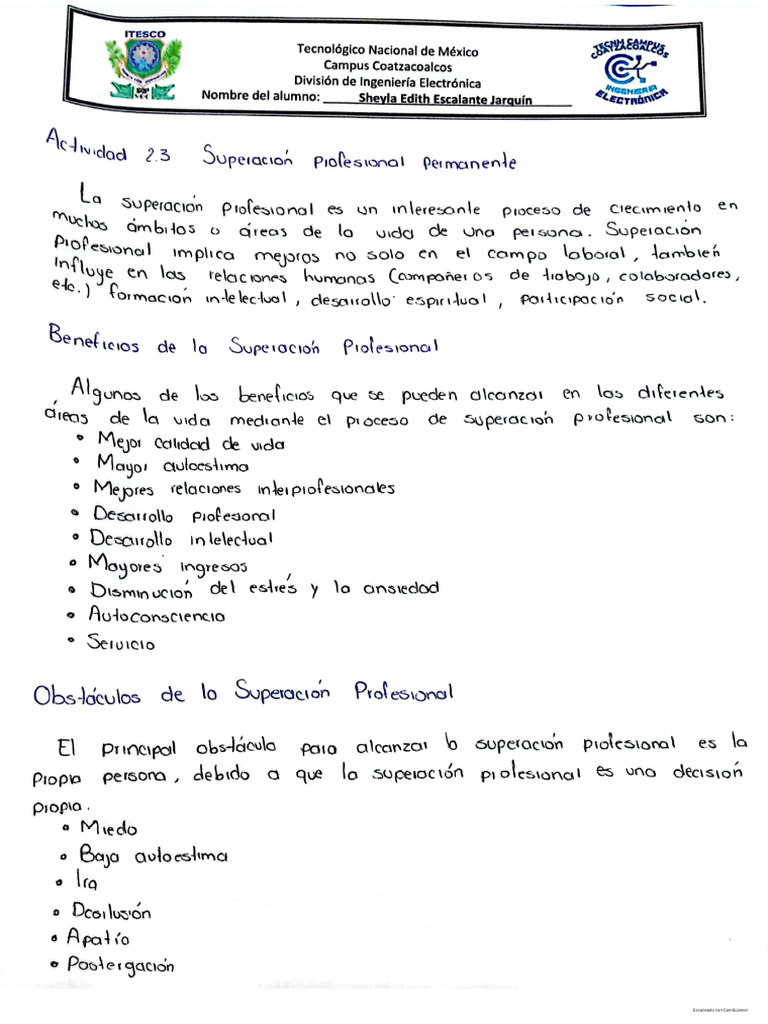 ITESCO
Tecnológico Nacional de México
Campus Coatzacoalcos
División de Ingeniería Electrónica
Nombre del alumno: Sheyla Edith Escalante Jarquín
TECNM CAMPUS
COATZACOALCOS
INGENIERIA
ELECTRÓNICA
Actividad 2.3 Superación Profesional Permanente
La superación profesional es un interesante proceso de crecimiento en
muchos ámbitos o áreas de la vida de una persona. Superación
Profesional implica mejoras no solo en el campo laboral, también
influye en las relaciones humanas (compañeros de trabajo, colaboradores,
etc.) formación intelectual, desarrollo espiritual, participación social.
Beneficios de la Superación Profesional
Algunos de los beneficios que se pueden alcanzar en las diferentes
áreas de la vida mediante el proceso de superación profesional son:
• Mejor calidad de vida
• Mayor autoestima
• Mejores relaciones interprofesionales
• Desarrollo profesional
• Desarrollo intelectual
• Mayores ingresos
• Disminución del estrés y la ansiedad
• Autoconsciencia
• Servicio
Obstáculos de la Superación Profesional
El principal obstáculo para alcanzar la superación profesional es la
propia persona, debido a que la superación profesional es una decisión
propia.
• Miedo
• Baja autoestima
• Ira
• Desilusión
• Apatía
• Postergación
Escaneado con CamScanner